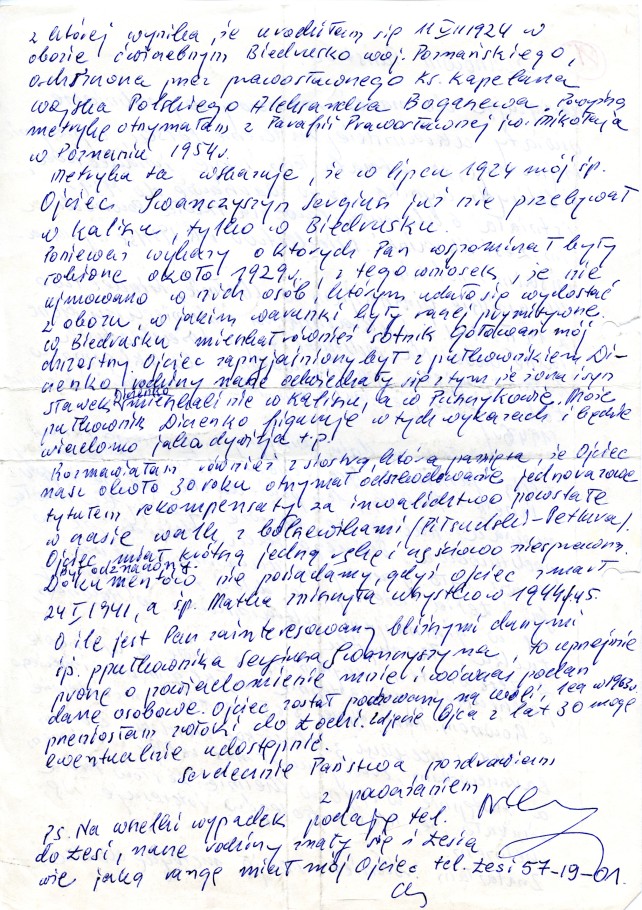 z której wynika, że urodziłam się 11 VIII 1924 w
obozie ćwiczebnym Biedrusko woj. Poznańskiego,
ochrzczona przez prawosławnego Ks. Kapelana
Wojska Polskiego Aleksandra Boganewa. Powyższą
metrykę otrzymałam z Parafii Prawosławnej św. Mikołaja
w Poznaniu 1954 r.
Metryka ta wskazuje, że w lipcu 1924 mój śp.
Ojciec Iwanczyszyn Sergiusz już nie przebywał
w Kaliszu, tylko w Biedrusku.
Ponieważ wykazy o których Pan wspominał były
robione około 1929 r. z tego wniosek, że nie
ujmowano w nich osób, którym udało się wydostać
z obozu, w jakim warunki były raczej prymitywne.
W Biedrusku mieszkał również sotnik Gołowan mój
chrzestny. Ojciec zaprzyjaźniony był z pułkownikiem Di-
nenko, rodziny nasze odwiedzały się z tym że żona i syn
Sławek Dinenko mieszkali nie w Kaliszu, a w Puszczykowie. Może
pułkownik Dinenko figuruje w tych wykazach i będzie
wiadomo jaka dywizja itp.
Rozmawiałam również z siostrą, która pamięta, że Ojciec
nasz około 30 roku otrzymał odszkodowanie jednorazowe
tytułem rekompensaty za inwalidztwo powstałe
w czasie walk z bolszewikami (Piłsudski-Petlura).
Ojciec miał krótszą jedną rękę i częściowo niesprawną.
Był odznaczony.
Dokumentów nie posiadamy, gdyż ojciec zmarł
24 I 1941, a śp. Matka zniszczyła wszystko w 1944/45.
O ile jest Pan zainteresowany bliższymi danymi
śp. ppułkownika Sergiusza Iwanczyszyna, to uprzejmie
proszę o powiadomienie mnie i wówczas podam
dane osobowe. Ojciec został pochowany na wsi, lecz w 1963 r.
przeniosłam zwłoki do Łodzi. Zdjęcie Ojca z lat 30 mogę
ewentualnie udostępnić.
Serdecznie Państwa pozdrawiam
z poważaniem
Ps. Na wszelki wypadek podaję tel.
do Łesi, nasze rodziny znały się i Łesia
wie jaką rangę miał mój Ojciec. tel. Łesi 57-19-01.